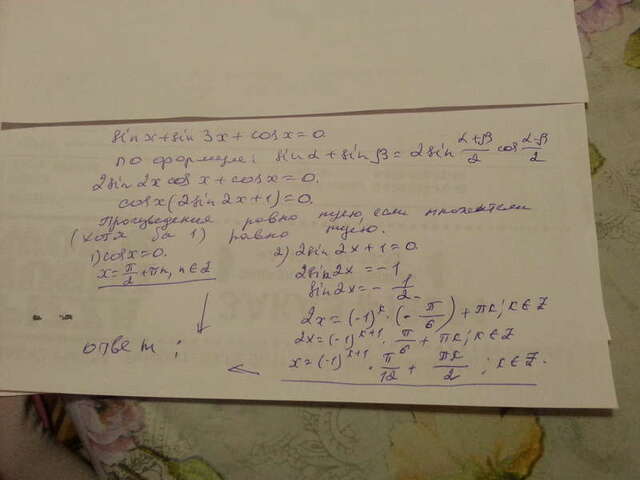 sin x + sin 3x + cos x = 0.
по формуле: sin α + sin β = 2 sin (α+β)/2 cos (α-β)/2
2 sin 2x cos x + cos x = 0.
cos x (2 sin 2x + 1) = 0.
Произведения равно нулю, если множители
(хотя бы 1) равно нулю.
1) cos x = 0.
x = π/2 + πn, n ∈ Z
2) 2 sin 2x + 1 = 0.
2 sin 2x = -1
sin 2x = - 1/2.
2x = (-1)^k · (- π/6) + πk; k ∈ Z
2x = (-1)^(k+1) · π/6 + πk; k ∈ Z
x = (-1)^(k+1) · π/12 + πk/2 ; k ∈ Z.
ответ :